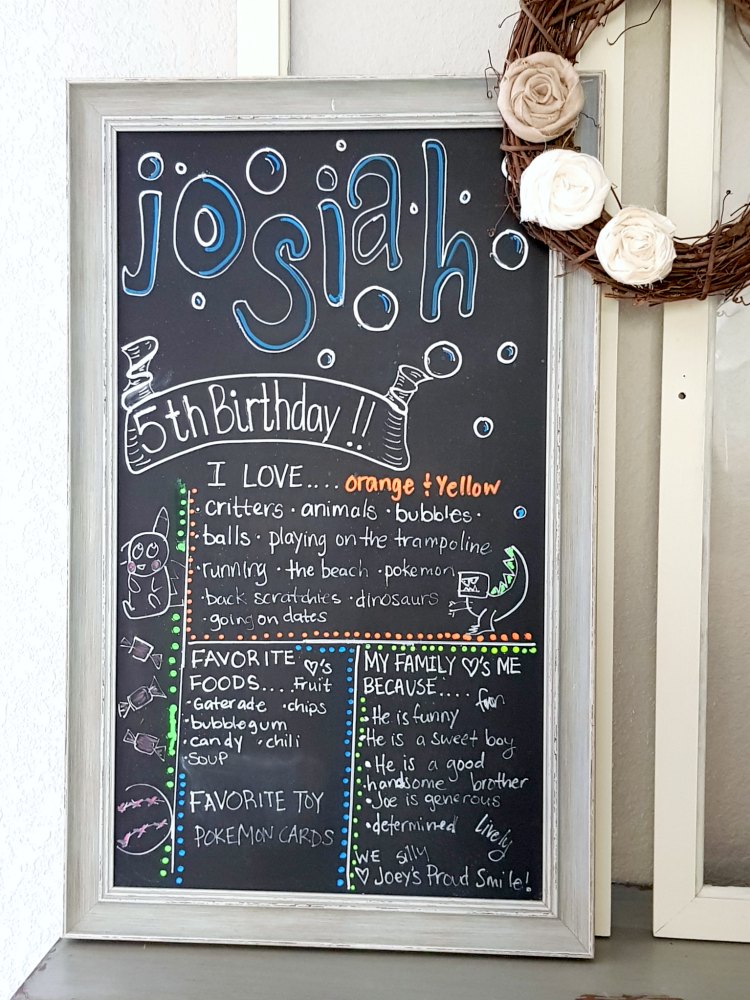 josiah
5th Birthday !!
I LOVE.... orange & Yellow
· critters · animals · bubbles ·
· balls · playing on the trampoline
· running · the beach · pokemon
· back scratchies · dinosaurs
· going on dates
FAVORITE ♡'s
FOODS.... Fruit
· Gaterade · chips
· bubblegum
· candy · chili
· Soup
FAVORITE TOY
POKEMON CARDS
MY FAMILY ♡'s ME
BECAUSE....
fun
· He is funny
· He is a sweet boy
· He is a good
· handsome brother
· Joe is generous
· determined Lively
WE silly
♡ Joey's Proud Smile!